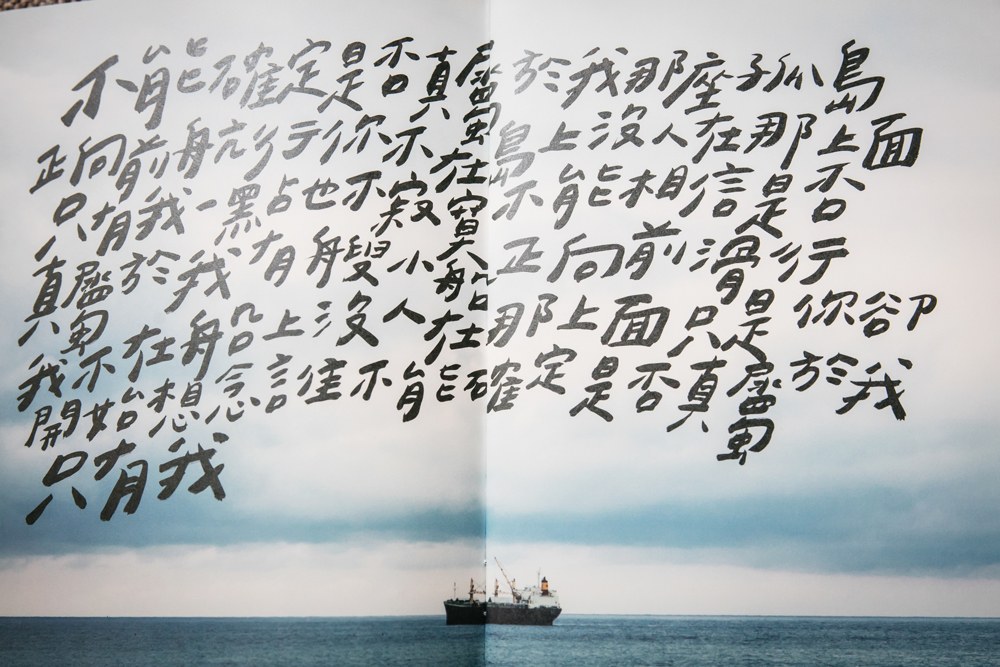 不能確定是否真屬於我那座孤島
正向前航行你不在島上沒人在那上面
只有我一點也不寂寞不能相信是否
真屬於我有艘小船正向前滑行
我不在船上沒人在那上面只是你卻
開始想念誰不能確定是否真屬於我
只有我